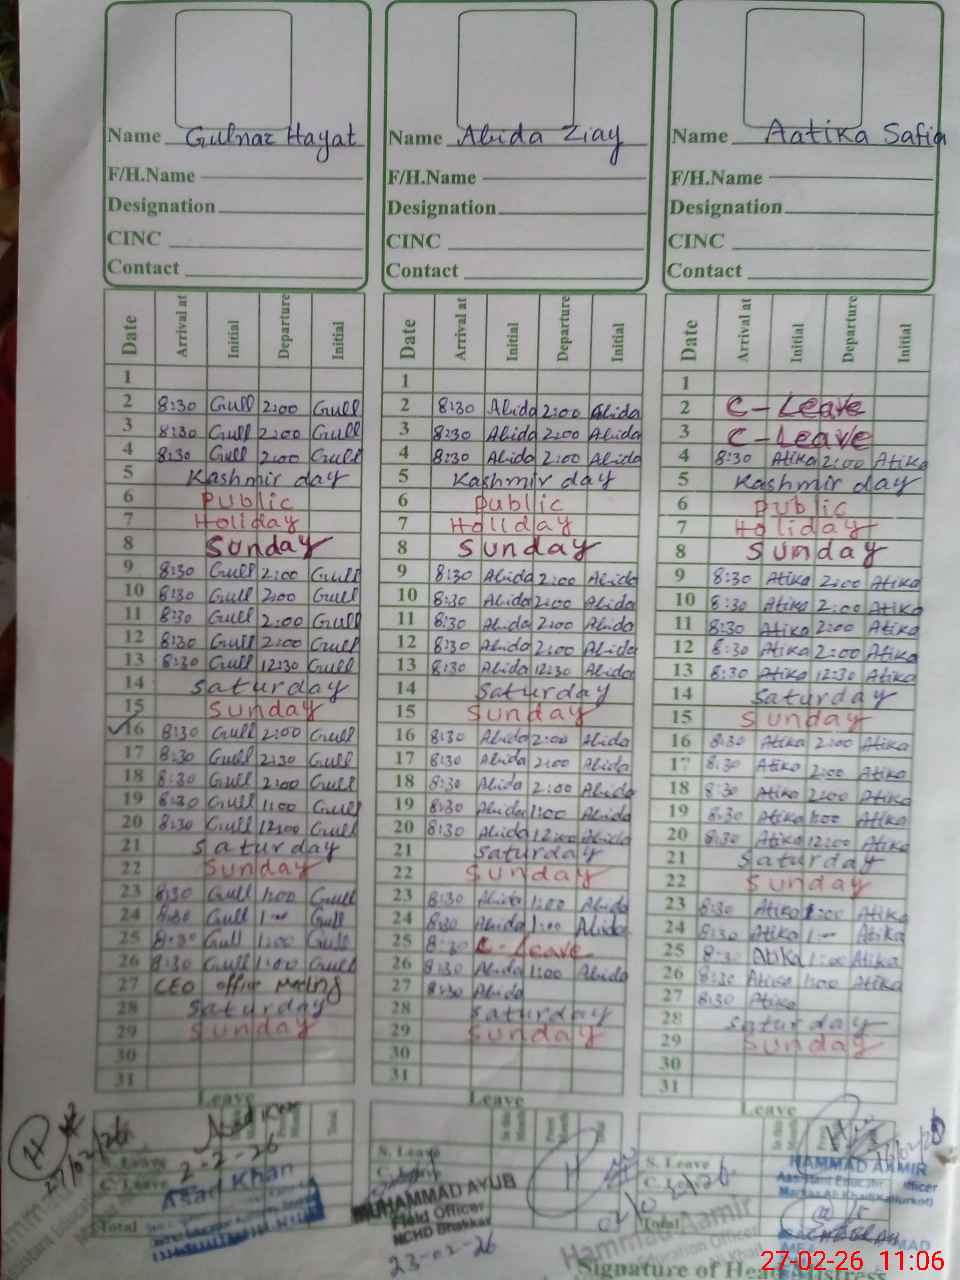 Name Gulnaz Hayat
F/H.Name
Designation
CINC
Contact
Date Arrival at Initial Departure Initial
1
2 8:30 Gull 2:00 Gull
3 8:30 Gull 2:00 Gull
4 8:30 Gull 2:00 Gull
5 Kashmir day
6 Public
7 Holiday
8 Sunday
9 8:30 Gull 2:00 Gull
10 8:30 Gull 2:00 Gull
11 8:30 Gull 2:00 Gull
12 8:30 Gull 2:00 Gull
13 8:30 Gull 12:30 Gull
14 Saturday
15 Sunday
16 8:30 Gull 2:00 Gull
17 8:30 Gull Gull
18 8:30 Gull 2:00 Gull
19 8:30 Gull 1:00 Gull
20 8:30 Gull 12:00 Gull
21 Saturday
22 Sunday
23 8:30 Gull 1:00 Gull
24 8:30 Gull 1:- Gull
25 8:30 Gull 1:00 Gull
26 8:30 Gull 1:00 Gull
27 CEO office meeting
28 Saturday
29 Sunday
30
31
Leave
S. Leave
C. Leave
Total
27/02/26
2-2-26
Azad Khan
Name Abida Ziay
F/H.Name
Designation
CINC
Contact
Date Arrival at Initial Departure Initial
1
2 8:30 Abida 2:00 Abida
3 8:30 Abida 2:00 Abida
4 8:30 Abida 2:00 Abida
5 Kashmir day
6 Public
7 Holiday
8 Sunday
9 8:30 Abida 2:00 Abida
10 8:30 Abida 2:00 Abida
11 8:30 Abida 2:00 Abida
12 8:30 Abida 2:00 Abida
13 8:30 Abida 12:30 Abida
14 Saturday
15 Sunday
16 8:30 Abida 2:00 Abida
17 8:30 Abida 2:00 Abida
18 8:30 Abida 2:00 Abida
19 8:30 Abida 1:00 Abida
20 8:30 Abida 12:00 Abida
21 Saturday
22 Sunday
23 8:30 Abida 1:00 Abida
24 8:30 Abida 1:00 Abida
25 8:30 C-Leave
26 8:30 Abida 1:00 Abida
27 8:30 Abida
28 Saturday
29 Sunday
30
31
Leave
S. Leave
MUHAMMAD AYUB
Field Officer
NCHD Bhakkar
23-02-26
Name Aatika Safia
F/H.Name
Designation
CINC
Contact
Date Arrival at Initial Departure Initial
1
2 C-Leave
3 C-Leave
4 8:30 Atika 2:00 Atika
5 Kashmir day
6 Public
7 Holiday
8 Sunday
9 8:30 Atika 2:00 Atika
10 8:30 Atika 2:00 Atika
11 8:30 Atika 2:00 Atika
12 8:30 Atika 2:00 Atika
13 8:30 Atika 12:30 Atika
14 Saturday
15 Sunday
16 8:30 Atika 2:00 Atika
17 8:30 Atika 2:00 Atika
18 8:30 Atika 2:00 Atika
19 8:30 Atika 1:00 Atika
20 8:30 Atika 12:00 Atika
21 Saturday
22 Sunday
23 8:30 Atika 1:00 Atika
24 8:30 Atika 1:- Atika
25 8:3 Atika 1:00 Atika
26 8:30 Atika 1:00 Atika
27 8:30 Atika
28 Saturday
29 Sunday
30
31
Leave
S. Leave
Total
HAMMAD AAMIR
Hammad Aamir
Signature of
27-02-26 11:06